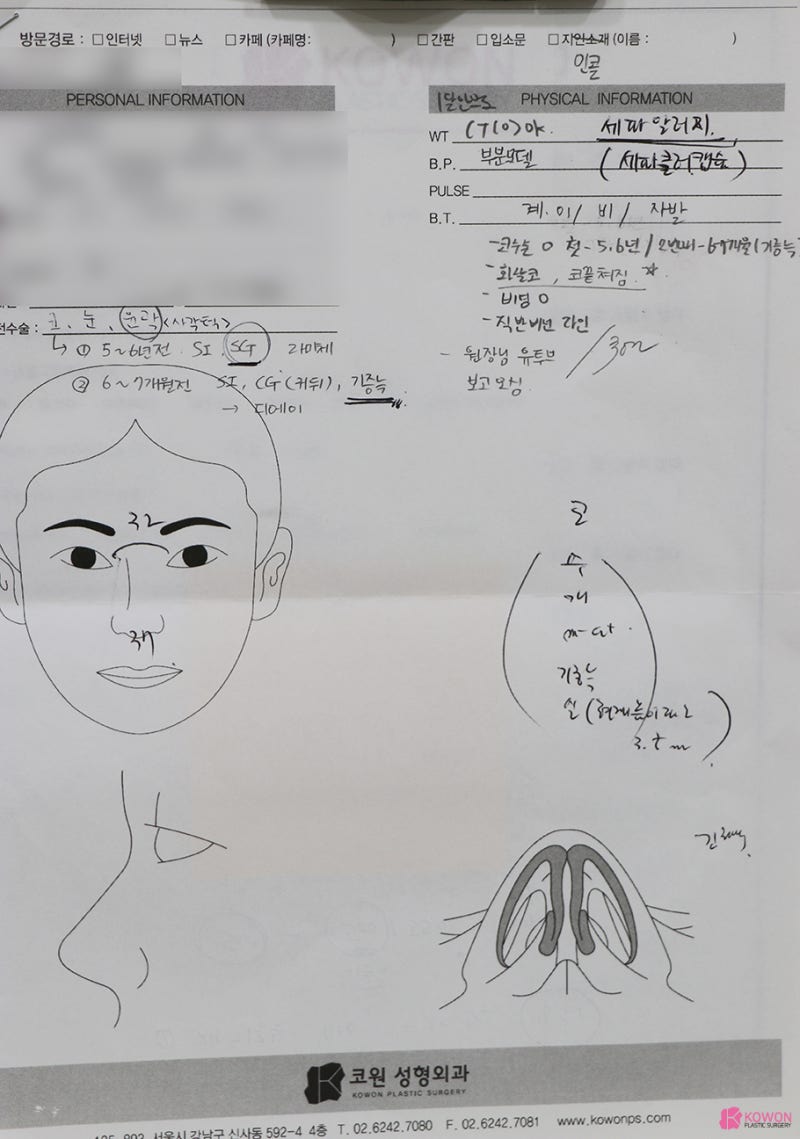 방문경로 : □인터넷 □뉴스 □카페 (카페명: ) □간판 □입소문 □지인소개 (이름 : )
인콜
PERSONAL INFORMATION
PHYSICAL INFORMATION
WT
세파 알러지.
B.P. 부분모델 (세파클러캡슐)
PULSE
B.T. 계. 이 / 비 / 자발
- 코수술 O 첫 - 5.6년 / 2번째 - 6개월 (기증늑
- 화살코, 코끝쳐짐.
- 비염 O
- 직반버선 라인
- 원장님 유투브
보고 오심.
전수술 : 코, 눈, 윤곽 <사각턱>
↳ ① 5~6년전 SI, SCG
② 6~7개월전 SI, CG (귀뒤), 기증늑
→ 디에이
코
수
개
기증늑
실
코원 성형외과
KOWON PLASTIC SURGERY
서울시 강남구 신사동 592-4 4층 T. 02.6242.7080 F. 02.6242.7081 www.kowonps.com
KOWON
PLASTIC SURGERY